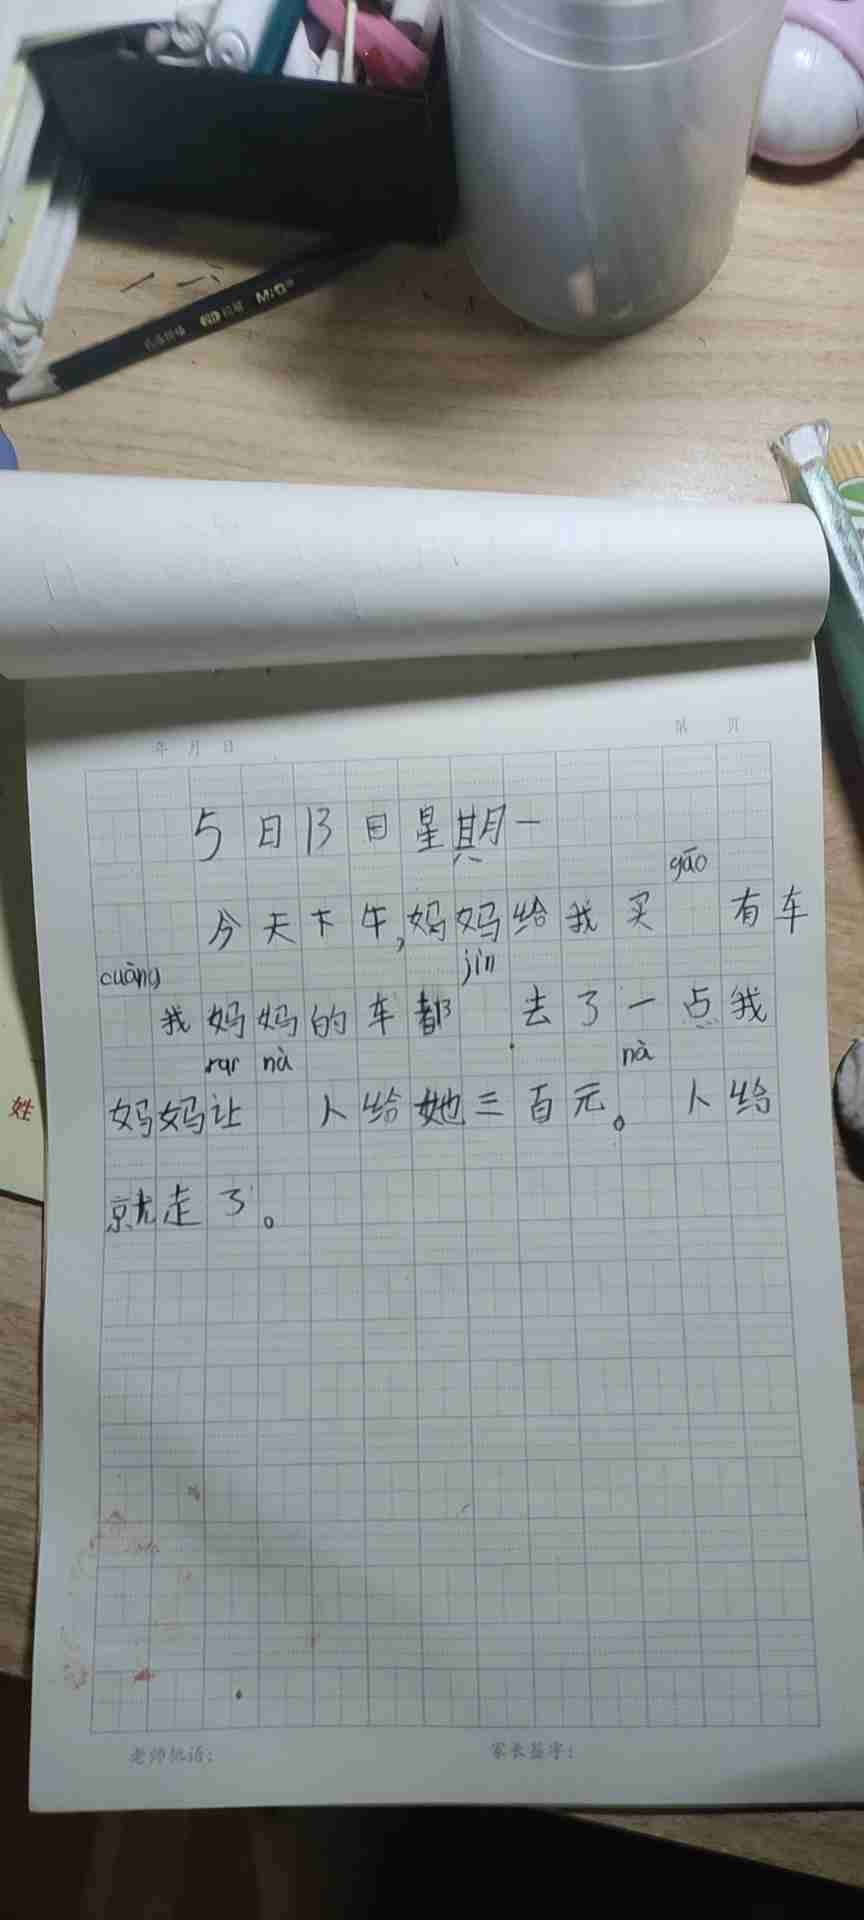 M&G
年 月 日 第 页
5日13日星期一
gāo
今天下午,妈妈给我买 有车
cuàng jìn
我妈妈的车都 去了一点我
rar nà nà
妈妈让 人给她三百元。 人给
就走了。
姓
老师批语: 家长签字: